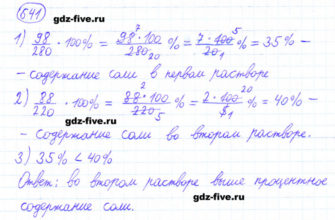 641
gdz-five.ru
1) 98/280 · 100% = 98⁷ · 100/280₂₀ % = 7 · 100⁵/20₁ % = 35% –
– содержание соли в первом растворе
gdz-five.ru
2) 88/220 · 100% = 88² · 100/220₅ % = 2 · 100²⁰/5₁ % = 40% –
gdz-five.ru
– содержание соли во втором растворе.
3) 35% < 40%
gdz-five.ru
Ответ: во втором растворе выше процентное
содержание соли.